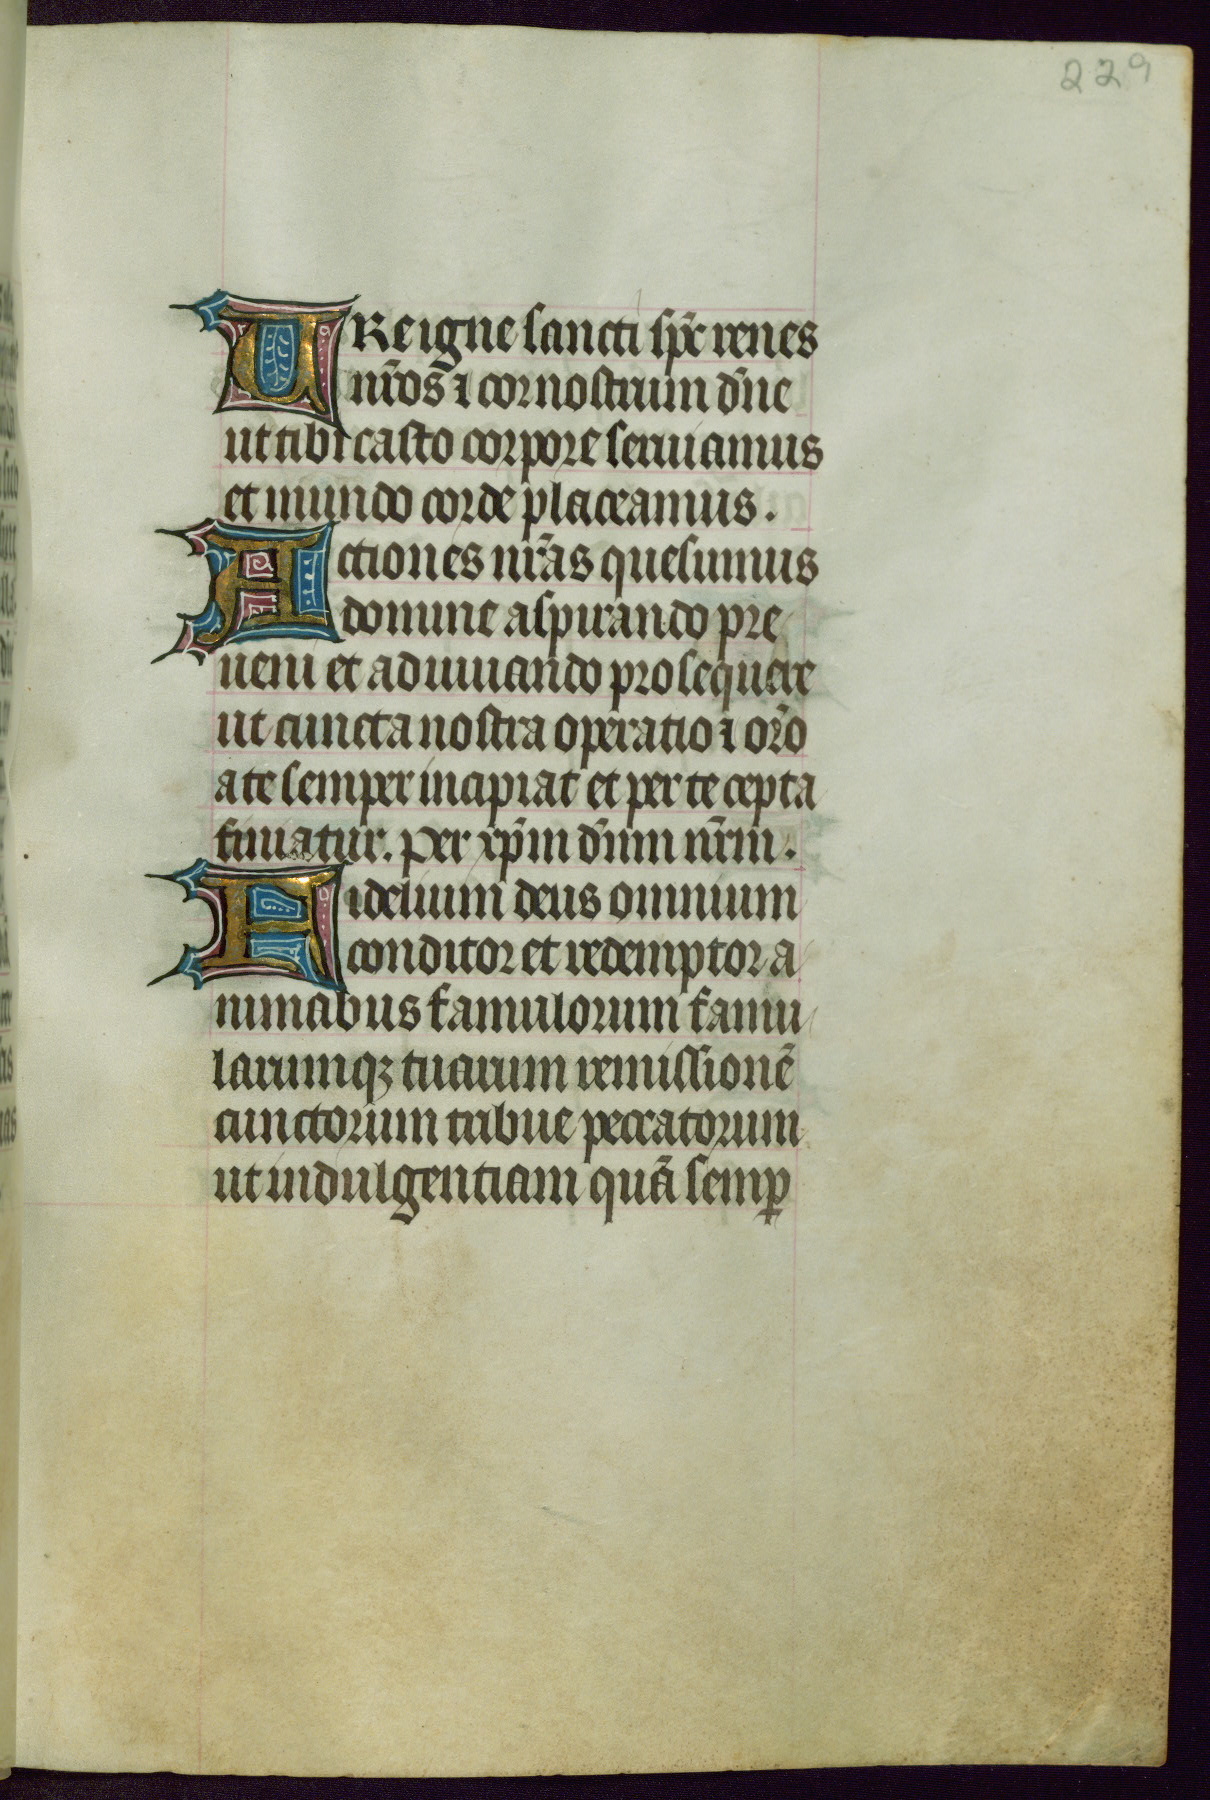 229
URe igne sancti sp̄c renes
nr̄os ⁊ cor nostrum dn̄e
ut tibi casto corpore seruiamus
et mundo corde placeamus.
Actiones nr̄as quesumus
domine aspirando pre
ueni et adiuuando prosequere
ut cuncta nostra operatio ⁊ or̄o
a te semper incipiat et per te cepta
finiatur. per xp̄m dn̄um nr̄m.
Fidelium deus omnium
conditor et redemptor a
nimabus famulorum famu
larumqꝫ tuarum remissionē
cunctorum tribue peccatorum
ut indulgentiam quā semꝑ